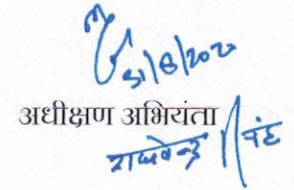 31/8/2020
अधीक्षण अभियंता
राघवेन्द्र सिंह